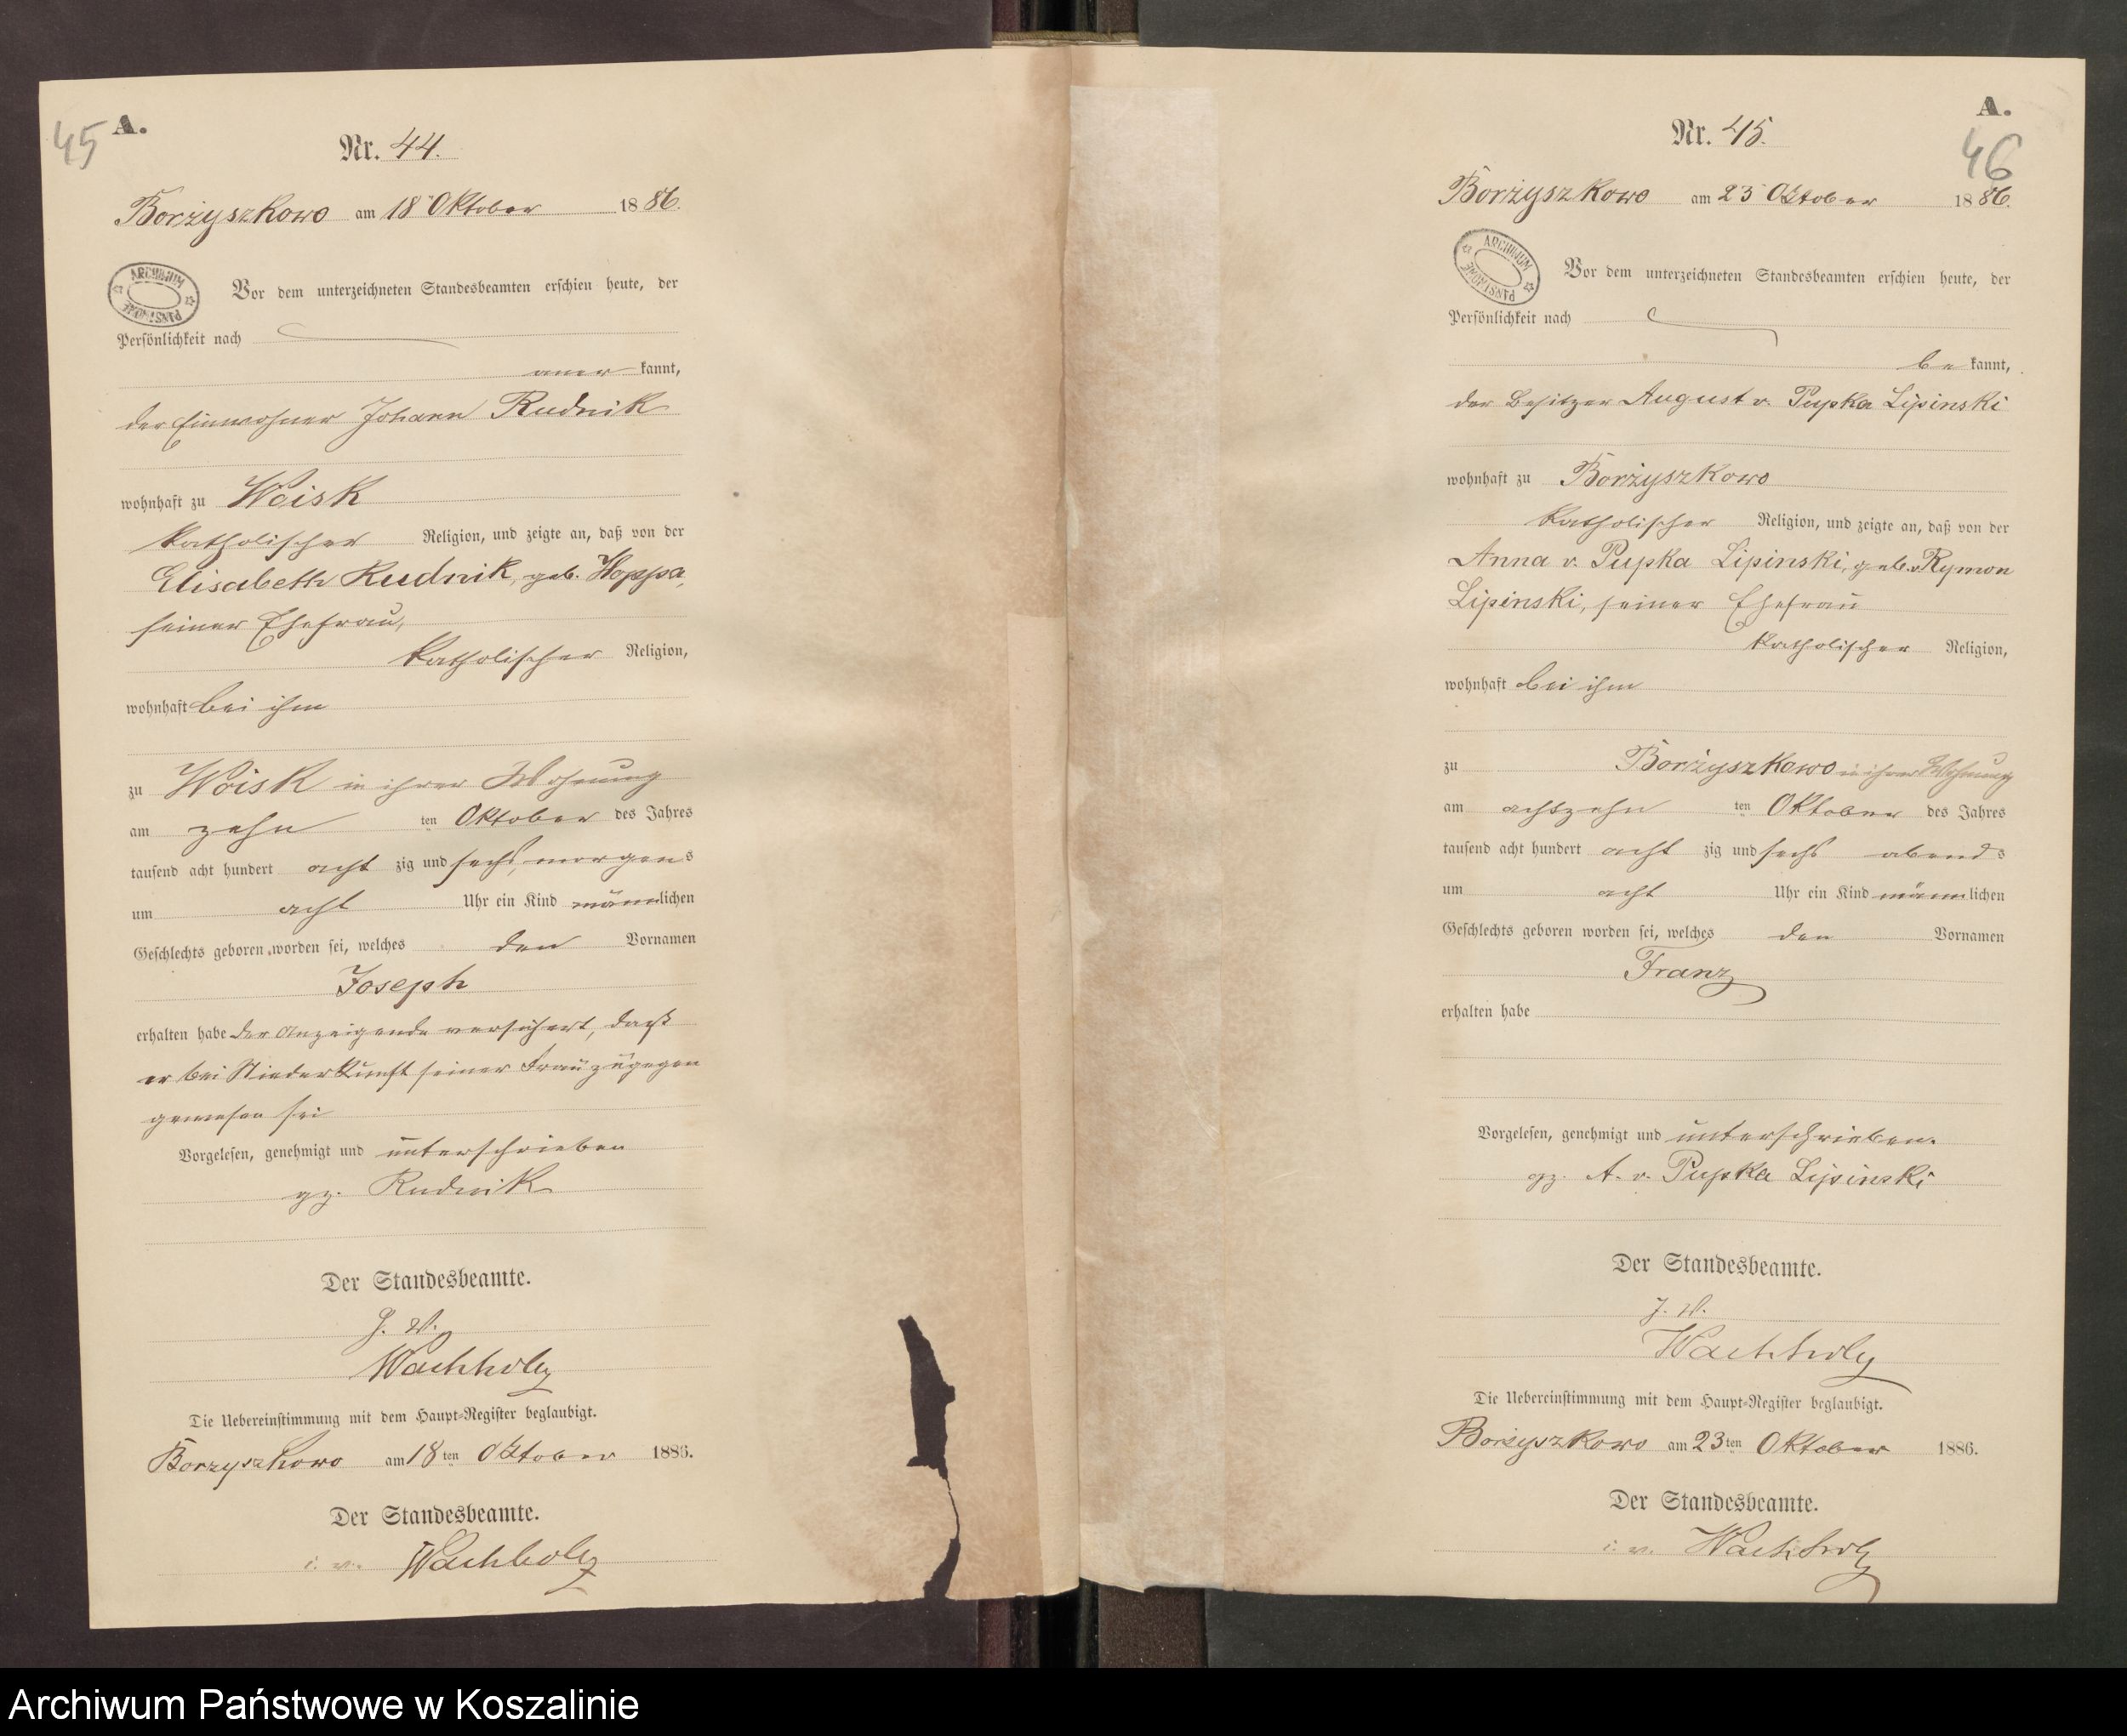 45
A.
Nr. 44.
Borzyszkowo am 18 Oktober 1886.
ARCHIWUM PAŃSTWOWE
Vor dem unterzeichneten Standesbeamten erschien heute, der
Persönlichkeit nach
aner kannt,
der Einwohner Johann Rudnik
wohnhaft zu Woisk
katholischer Religion, und zeigte an, daß von der
Elisabeth Rudnik, geb. Hoppa,
seiner Ehefrau,
katholischer Religion,
wohnhaft bei ihm
zu Woisk in ihrer Wohnung
am zehn ten Oktober des Jahres
tausend acht hundert acht zig und sechs, morgens
um acht Uhr ein Kind männlichen
Geschlechts geboren worden sei, welches den Vornamen
Joseph
erhalten habe der Anzeigende versichert, daß
er bei Niederkunft seiner Frau zugegen
gewesen sei
Vorgelesen, genehmigt und unterschrieben
gz. Rudnik
Der Standesbeamte.
J. V.
Wachholz
Die Uebereinstimmung mit dem Haupt-Register beglaubigt.
Borzyszkowo am 18 ten Oktober 1886.
Der Standesbeamte.
i. v. Wachholz
A.
46
Nr. 45.
Borzyszkowo am 23 Oktober 1886.
ARCHIWUM PAŃSTWOWE
Vor dem unterzeichneten Standesbeamten erschien heute, der
Persönlichkeit nach
be kannt,
der Besitzer August v. Pupka Lipinski
wohnhaft zu Borzyszkowo
katholischer Religion, und zeigte an, daß von der
Anna v. Pupka Lipinski, geb. v Rymon
Lipinski, seiner Ehefrau
katholischer Religion,
wohnhaft bei ihm
zu Borzyszkowo in ihrer Wohnung
am achtzehn ten Oktober des Jahres
tausend acht hundert acht zig und sechs abends
um acht Uhr ein Kind männlichen
Geschlechts geboren worden sei, welches den Vornamen
Franz
erhalten habe
Vorgelesen, genehmigt und unterschrieben.
gz. A. v. Pupka Lipinski
Der Standesbeamte.
J. V.
Wachholz
Die Uebereinstimmung mit dem Haupt-Register beglaubigt.
Borzyszkowo am 23 ten Oktober 1886.
Der Standesbeamte.
i. v. Wachholz
Archiwum Państwowe w Koszalinie